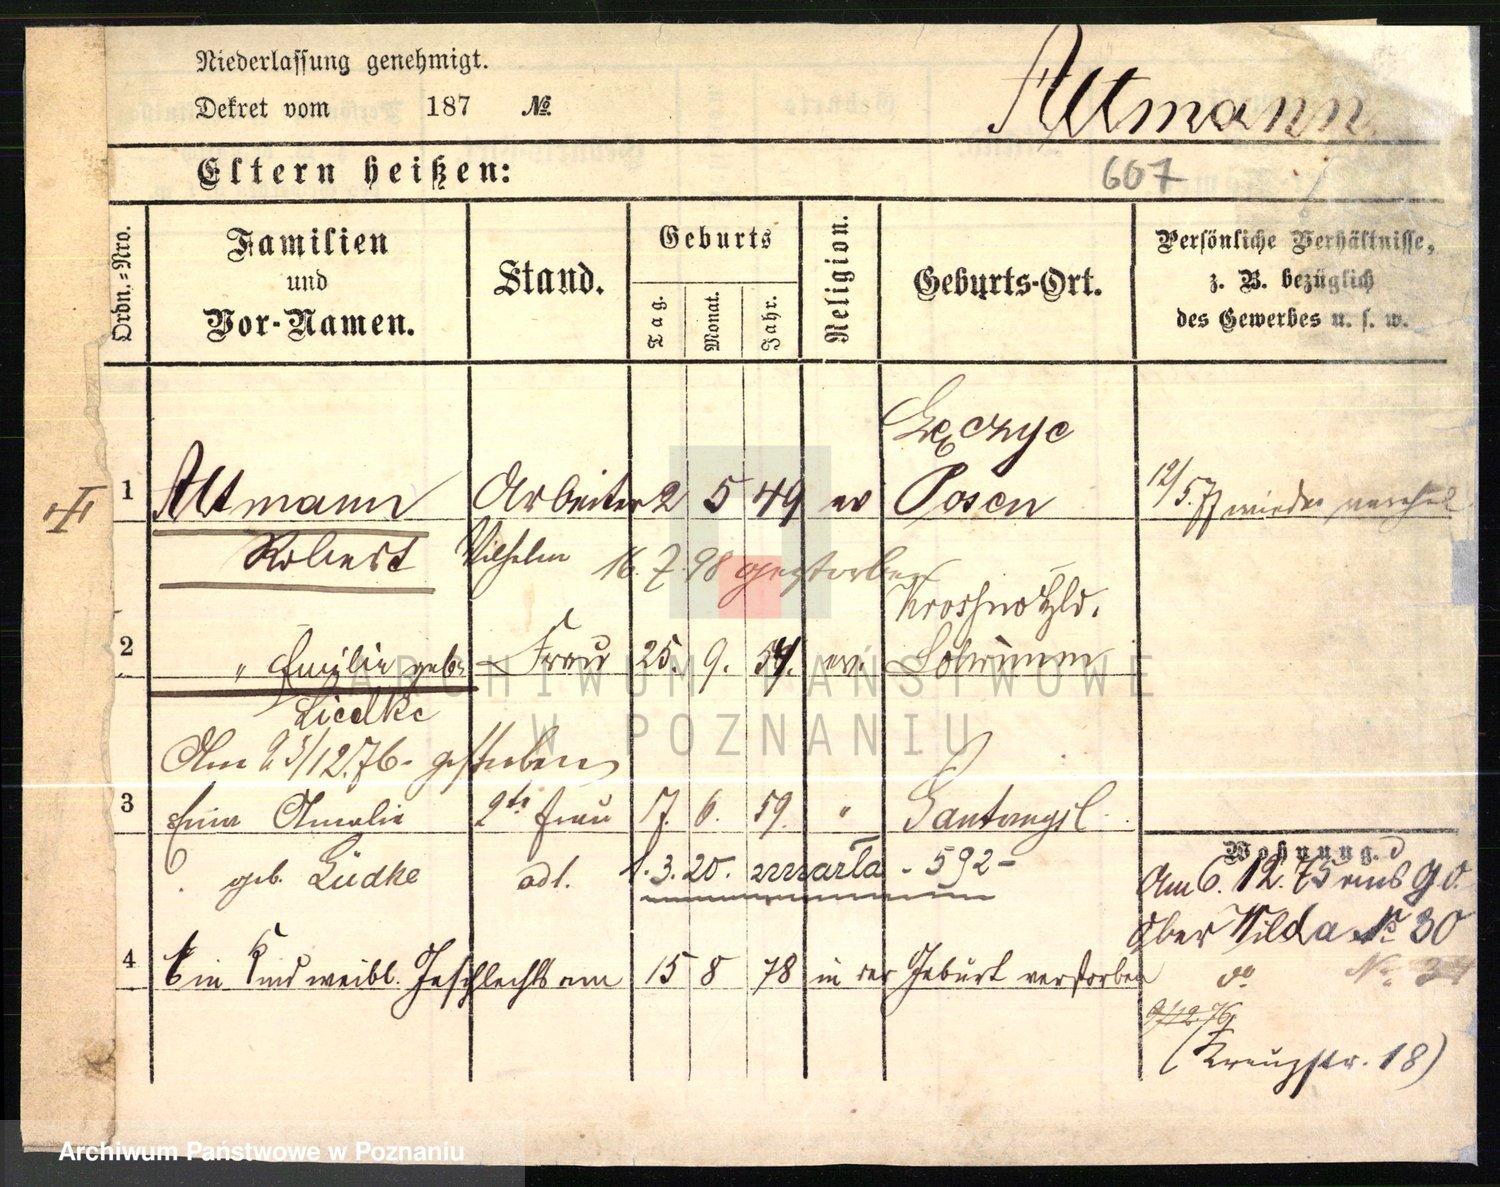 Niederlassung genehmigt.
Dekret vom 187 №
Altmann.
Eltern heißen:
607
Ordn.=Nro.
Familien und Vor-Namen.
Stand.
Geburts
Tag.
Monat.
Jahr.
Religion.
Geburts-Ort.
Persönliche Verhältnisse, z. B. bezüglich des Gewerbes u. s. w.
1 Altmann Arbeiter 2 5 49 ev Posen 12/5.77 wieder
Robert Wilhelm 16.7.98 gestorben
2 " Emilie geb. Frau 25. 9. 54. ev.
Liedke
Am 25/12.76. gestorben
3 Amalie 2te Frau 17. 6. 59. "
geb. Lüdke adl. 1.3.20. zmarła - 592-
Wohnung.
Am 6. 12. 75 aus
Ober Wilda № 30
4 Ein Kind weibl. Geschlechts am 15 8 78 in der Geburt verstorben
do № 34
9/12.76
(Kreuzstr. 18)
ARCHIWUM PAŃSTWOWE
W POZNANIU
Archiwum Państwowe w Poznaniu